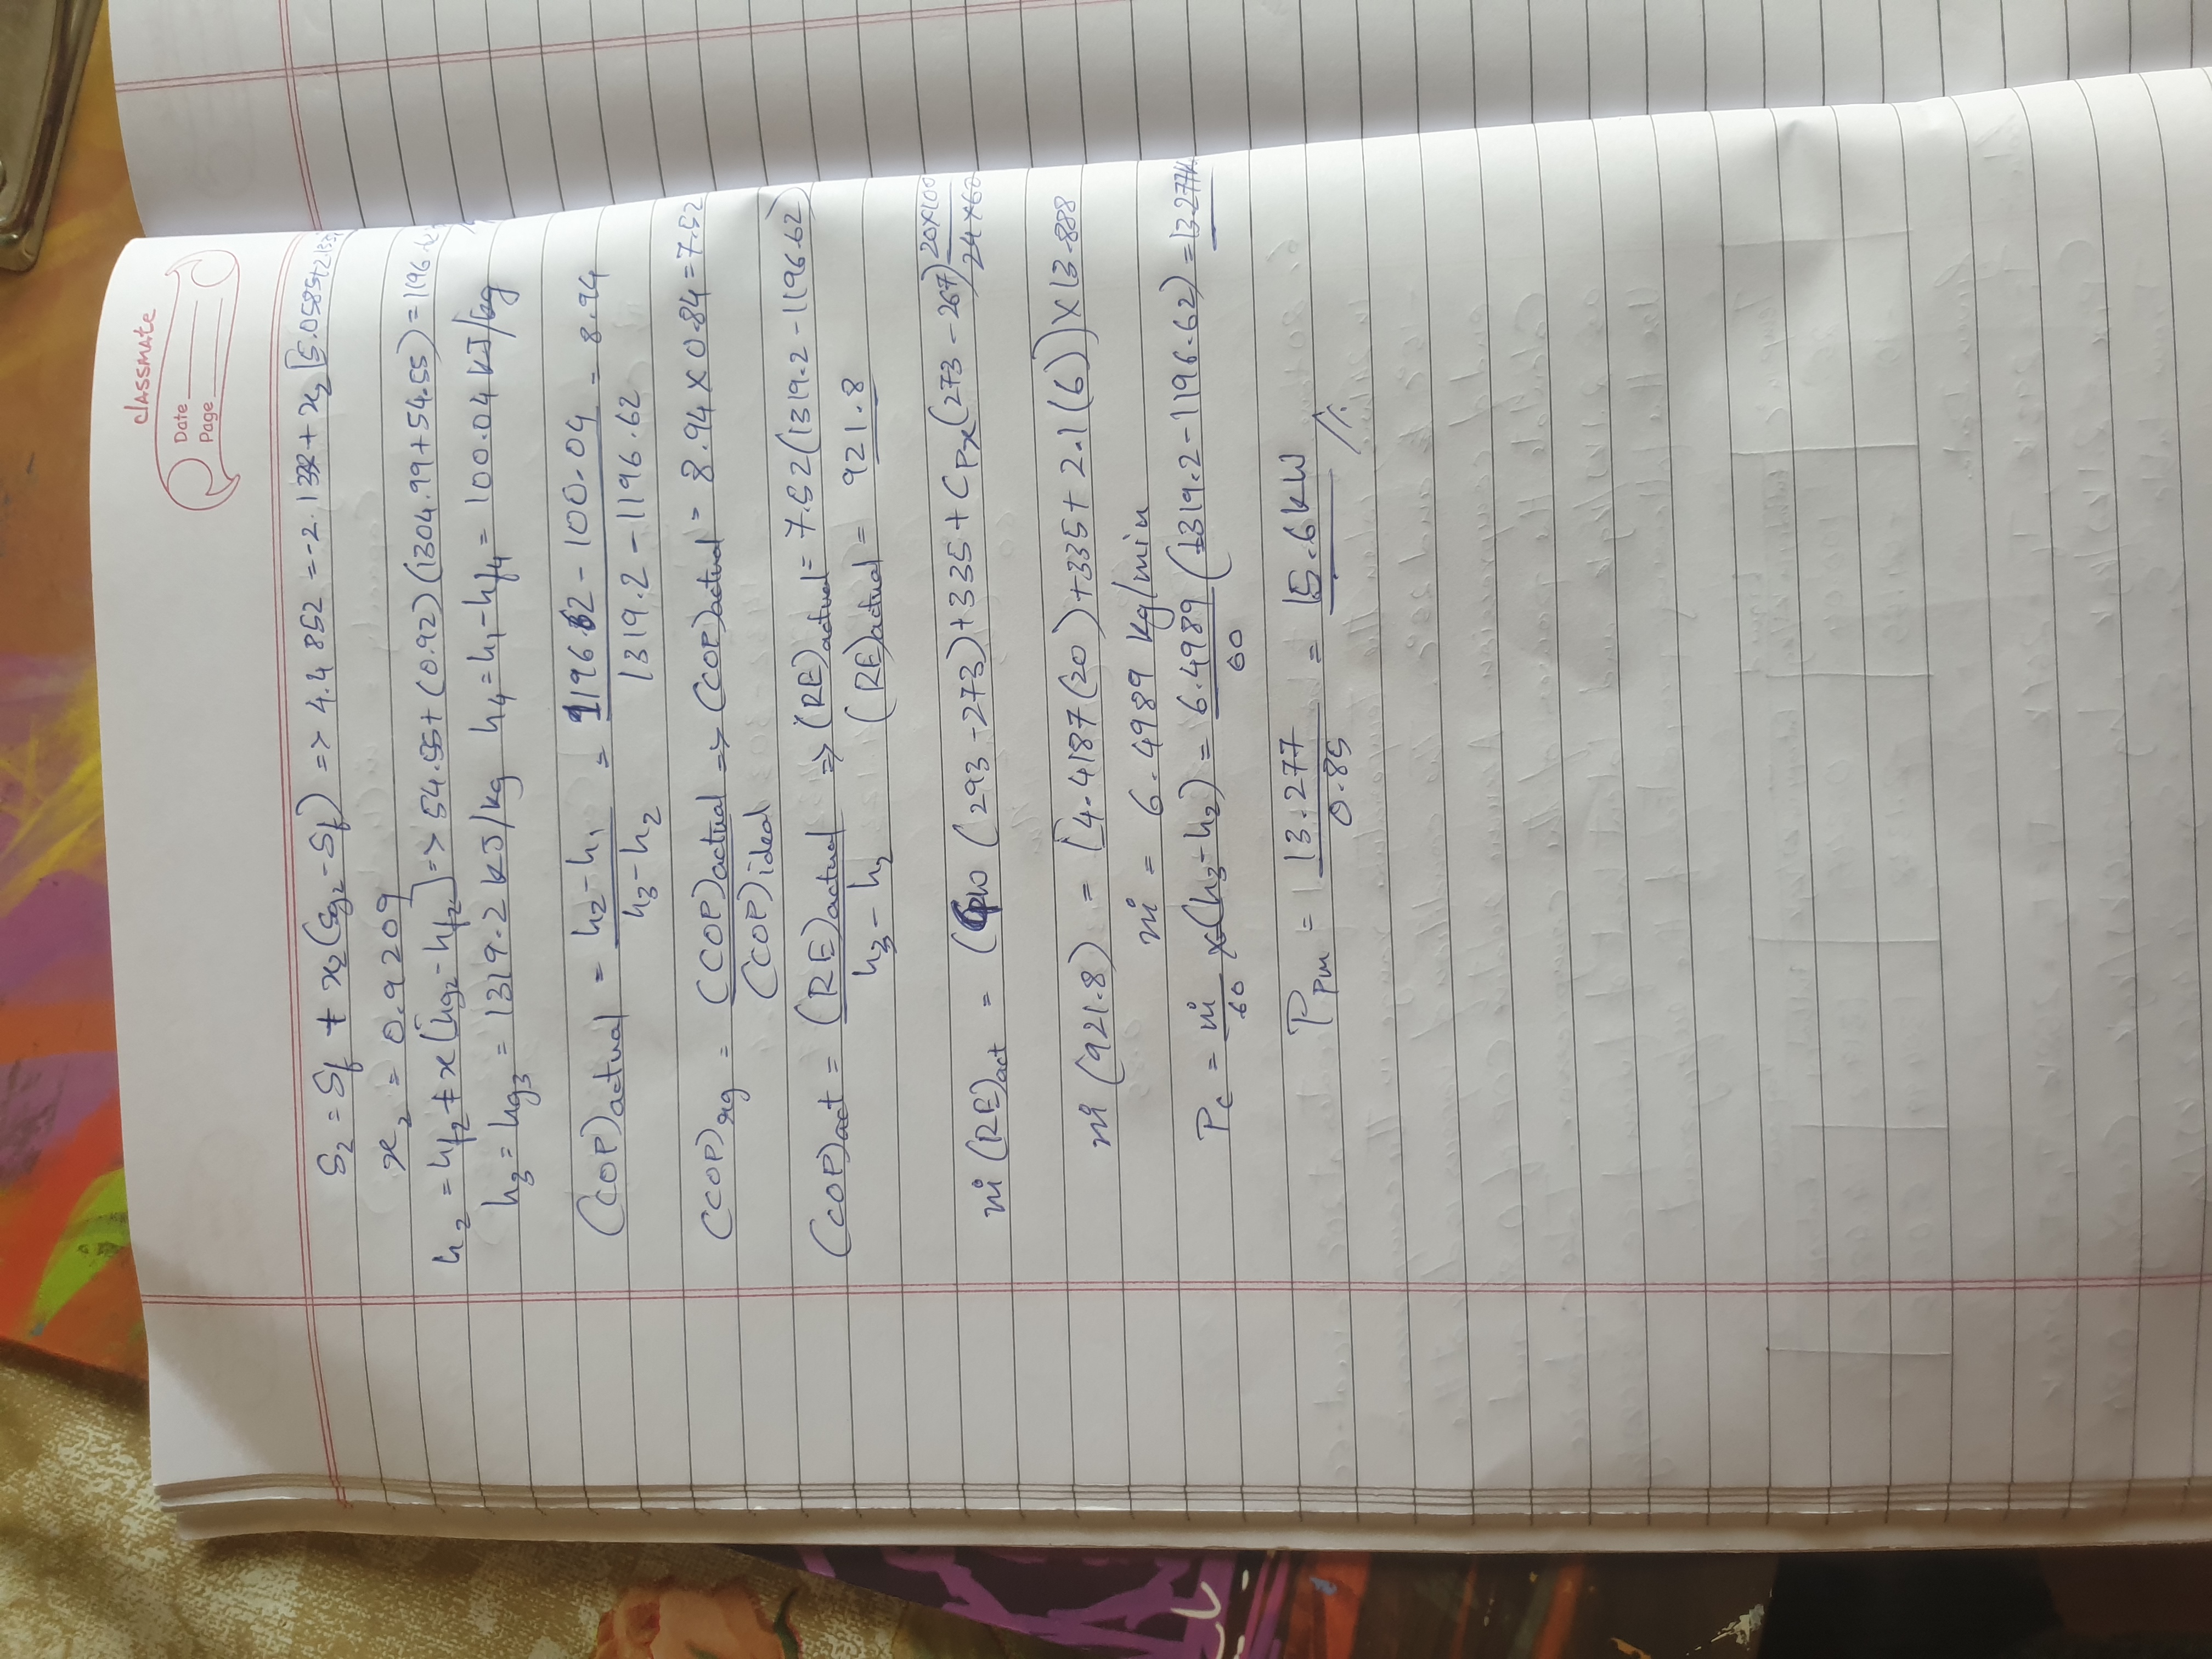 classmate
Date
Page
S₂ = Sf + x₂(Sg₂ - Sf) => 4.4852 = -2.1332 + x₂[5.0585+2.133
x₂ = 0.9209
h₂ = hf₂ + x[hg₂ - hf₂] => 54.55 + (0.92)(1304.99 + 54.55) = 1196.62
h₃ = hg₃ = 1319.2 kJ/kg h₄ = h₁ - hf₄ = 100.04 kJ/kg
(COP)actual = h₂ - h₁ / h₃ - h₂ = 1196.62 - 100.04 / 1319.2 - 1196.62 = 8.94
(COP)rg = (COP)actual / (COP)ideal => (COP)actual = 8.94 X 0.84 = 7.52
(COP)act = (RE)actual / h₃ - h₂ => (RE)actual = 7.52(1319.2 - 1196.62)
(RE)actual = 921.8
ṁ (RE)act = (Cpw (293 - 273) + 335 + Cpx(273 - 267) 20x100 / 24x60
ṁ (921.8) = [4.4187(20) + 335 + 2.1(6)] X 13.888
ṁ = 6.4989 kg/min
Pc = ṁ / 60 x (h₃ - h₂) = 6.4989 / 60 (1319.2 - 1196.62) = 13.277k
Ppm = 13.277 / 0.85 = 15.6 kW